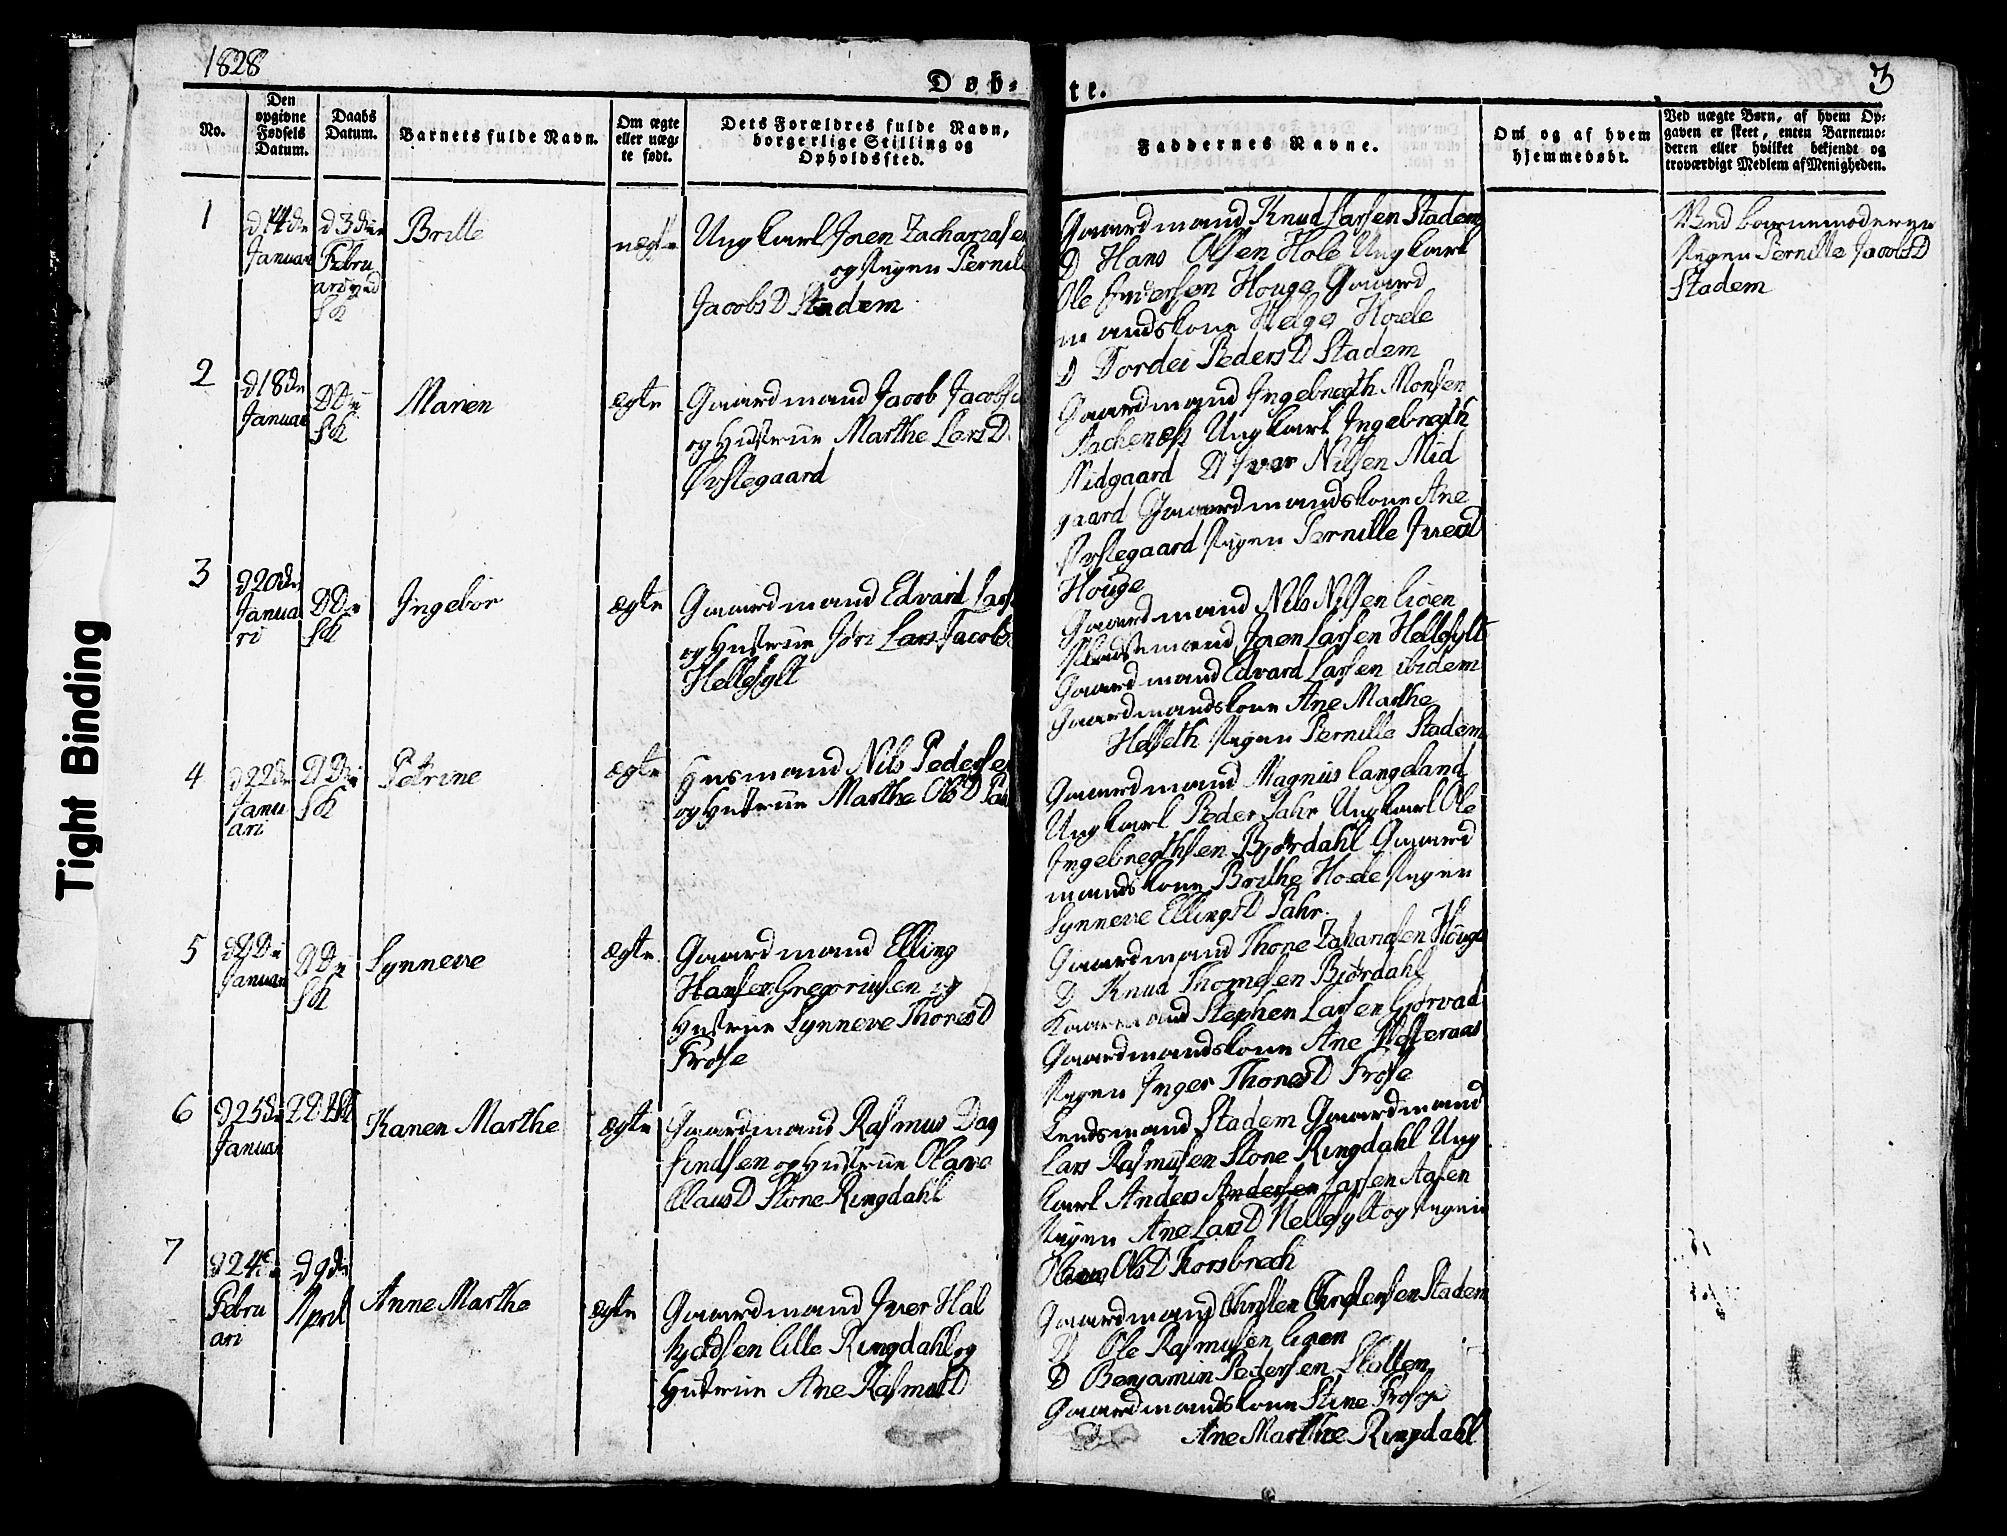 1828
Døb-
te.
3
No.
Den opgivne Fødsels Datum.
Daabs Datum.
Barnets fulde Navn.
Om ægte eller uæg-te født.
Dets Forældres fulde Navn, borgerlige Stilling og Opholdssted.
Faddernes Navne.
Om og af hvem hjemmedøbt.
Ved uægte Børn, af hvem Op-gaven er skeet, enten Barnemo-deren eller hvilket bekjendt og troværdigt Medlem af Menigheden.
1
d 14de
Januar
d 3die
Febru
ari ved
SK
Britte
uægte
Ungkarl Joen Zachariasen
og Pigen Pernille
JacobsD Stadem
Gaardmand Knud Larsen Stadem
D Hans Olsen Hole Ungkarl
Ole Iversen Houge Gaard
mandskone Helge Hoele
D Dordei PedersD Stadem
Ved barnemoderen
Pigen Pernille JacobsD
Stadem
2
d 18de
Januar
DDe
SK
Maren
ægte
Gaardmand Jacob Jacobsen
og Hustrue Marthe LarsD
Øvstegaard
Gaardmand Ingebregth Monsen
Ungkarl Ingebregth
Nidgaard D Iver Nilsen Mid
gaard Gaardmandskone Ane
Øvstegaard Pigen Pernille
Houge
3
d 20de
Janua
ri
DDe
SK
Ingebor
ægte
Gaardmand Edvard Lars
og Hustrue Jóri Lars Jacobs
Hellesylt
Gaardmand Nils Nilsen Lioen
Pladsmand Joen Larsen Hellesylt
Gaardmand Edvard Larsen ibidem
Gaardmandskone Ane Marthe
Helseth Pigen Pernille Stadem
4
d 22de
Janu
ari
DDe
SK
Petrine
ægte
Husmand Nils Pedersen
og Hustrue Marthe OlsD
Gaardmand Magnus Langeland
Ungkarl Peder Tahr Ungkarl Ole
Ingebregthsen Bjørdahl Gaard
mandskone Brithe Hoele Pigen
Synneve EllingsD Tahr.
5
DDe
Januar
DDe
SK
Synneve
ægte
Gaardmand Elling
Hansen Gregoriusen og
Hustrue Synneve ThoresD
Frøse
Gaardmand Thore Zakariasen Houge
D Knud Thomesen Biørdahl
Stephen Larsen Giørvad
Gaardmandskone Ane
Pigen Inger ThoresD Frøse
6
d 25de
Januar
DD SK
Karen Marthe
ægte
Gaardmand Rasmus Dag
findsen og Hustrue Olave
ClausD Store Ringdahl
Lensmand Stadem Gaardmand
Lars Rasmusen Store Ringdahl Ung
karl Anders Andersen Larsen
Pigen Ane LarsD Hellesylt og Pigen
OlsD Korsbrech
7
d 24de
Febru
ari
d 9de
April
Anne Marthe
ægte
Gaardmand Iver Hal
lille Ringdahl og
Hustrue Ane RasmusD
Gaardmand Christen Christensen Stadem
D Ole Rasmusen Lioen
D Benjamin Pedersen
Gaardmandskone Stine Frøse
Ane Marthe Ringdahl
Tight Binding